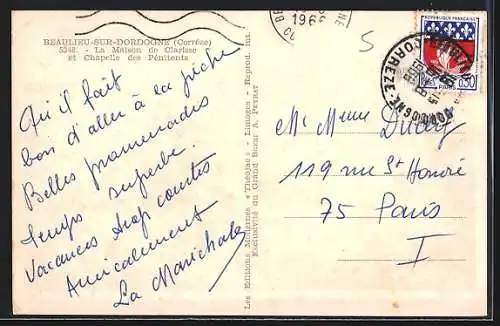 BEAULIEU-SUR-DORDOGNE (Corrèze)
5248. - La Maison de Clarisse
et Chapelle des Pénitents
Qu'il fait
bon d'aller à la pêche
Belles promenades
Temps superbe.
Vacances trop courtes
Amicalement
La Marichale
Les Editions Modernes « Théojac » - Limoges - Reprod. int.
Exclusivité du Grand Bazar A. PEYRAT
196
5
REPUBLIQUE FRANÇAISE
0,30
PARIS
CORREZE
Mr Mme
119 rue St Honoré
75 Paris
I